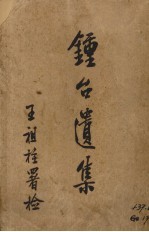 鍾台遺集
王祖桂署检